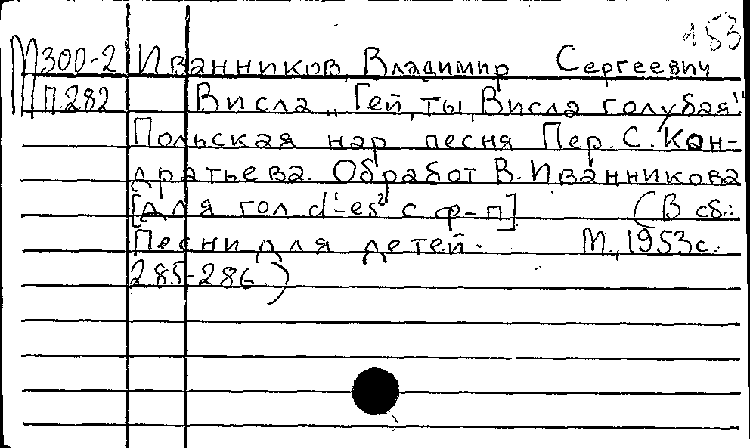 153
М300-2 Иванников, Владимир Сергеевич
П.282 Висла „Гей, ты, Висла голубая"
Польская нар песня Пер. С. Кон-
дратьева. Обработ В. Иванникова
[Для гол d¹-es² с ф-п] (В сб.:
Песни для детей. М., 1953 с.
285-286)